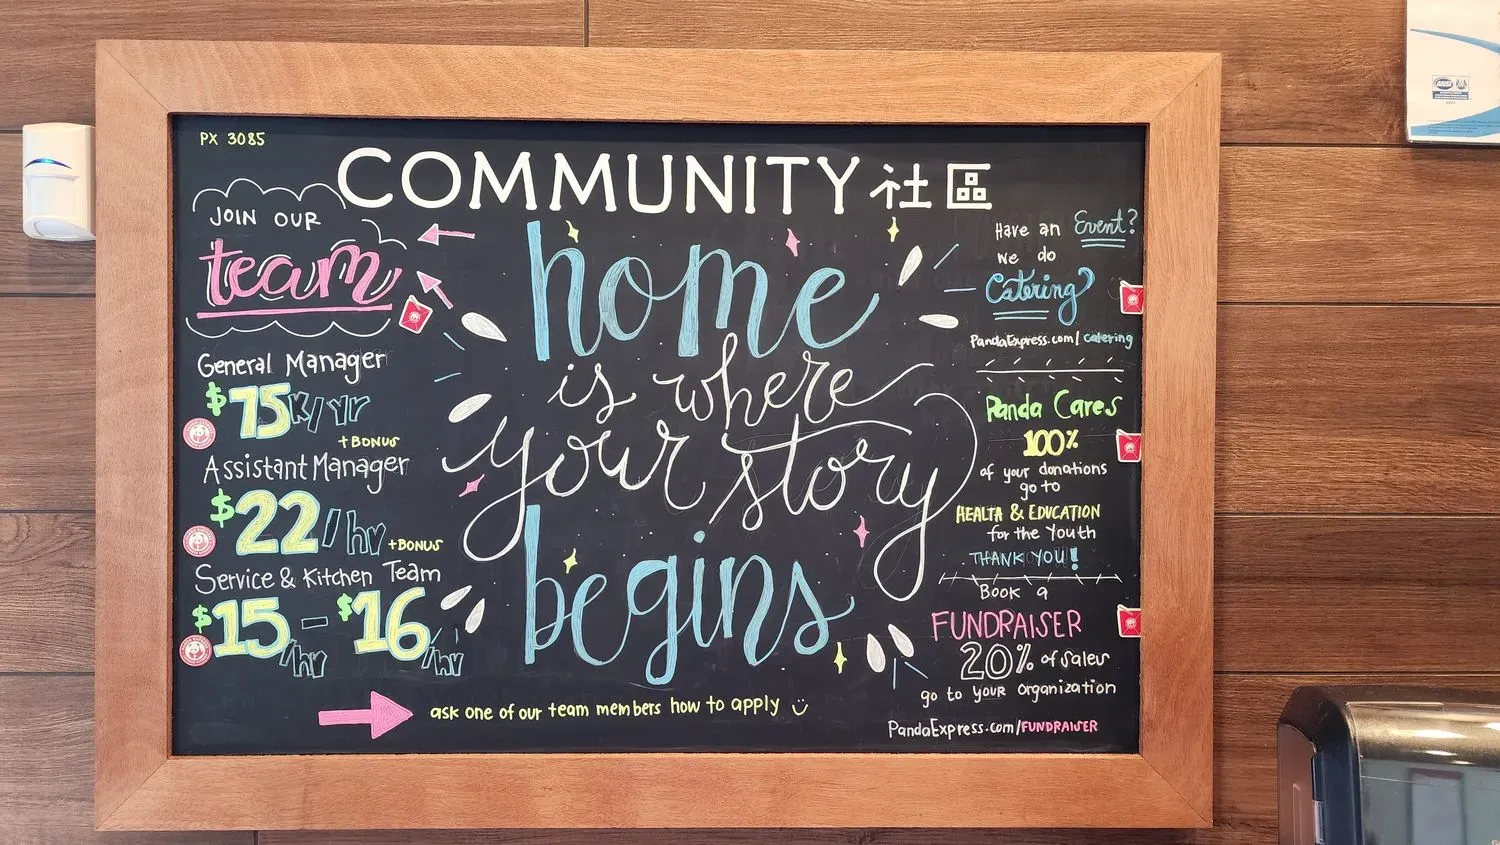 PX 3085
COMMUNITY 社區
JOIN OUR
team
General Manager
$75K/yr
+BONUS
Assistant Manager
$22/hr
+BONUS
Service & Kitchen Team
$15/hr - $16/hr
home
is where
your story
begins
ask one of our team members how to apply
Have an Event?
We do
Catering
PandaExpress.com/catering
Panda Cares
100%
of your donations
go to
HEALTH & EDUCATION
for the Youth
THANK YOU!
BOOK a
FUNDRAISER
20% of sales
go to YOUR organization
PandaExpress.com/FUNDRAISER
ANSI